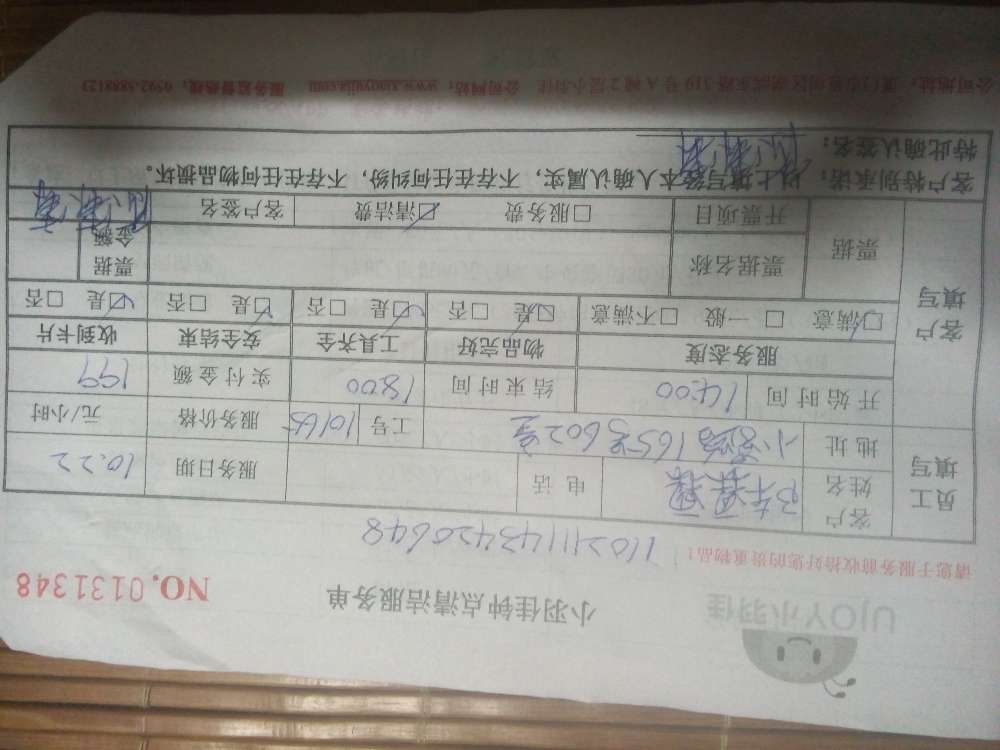 UJOY小羽佳
小羽佳钟点清洁服务单
NO.0131348
请您于服务前收拾好您的贵重物品！
110211143420648
员工填写
客户姓名
电话
服务日期 10.22
地址 165号602室
工号 10165
服务价格 元/小时
开始时间 14:00
结束时间 18:00
实付金额 199
客户填写
服务态度 物品完好 工具齐全 安全结束 收到卡片
☑满意 □一般 □不满意 ☑是 □否 ☑是 □否 ☑是 □否 ☑是 □否
票据
票据名称
票据金额
开票项目 □服务费 ☑清洁费 客户签名
客户特别承诺：以上填写经本人确认属实，不存在任何纠纷，不存在任何物品损坏。
特此确认签名：
网站：www.xiaoyujia.com 服务监督热线：0592-5888123